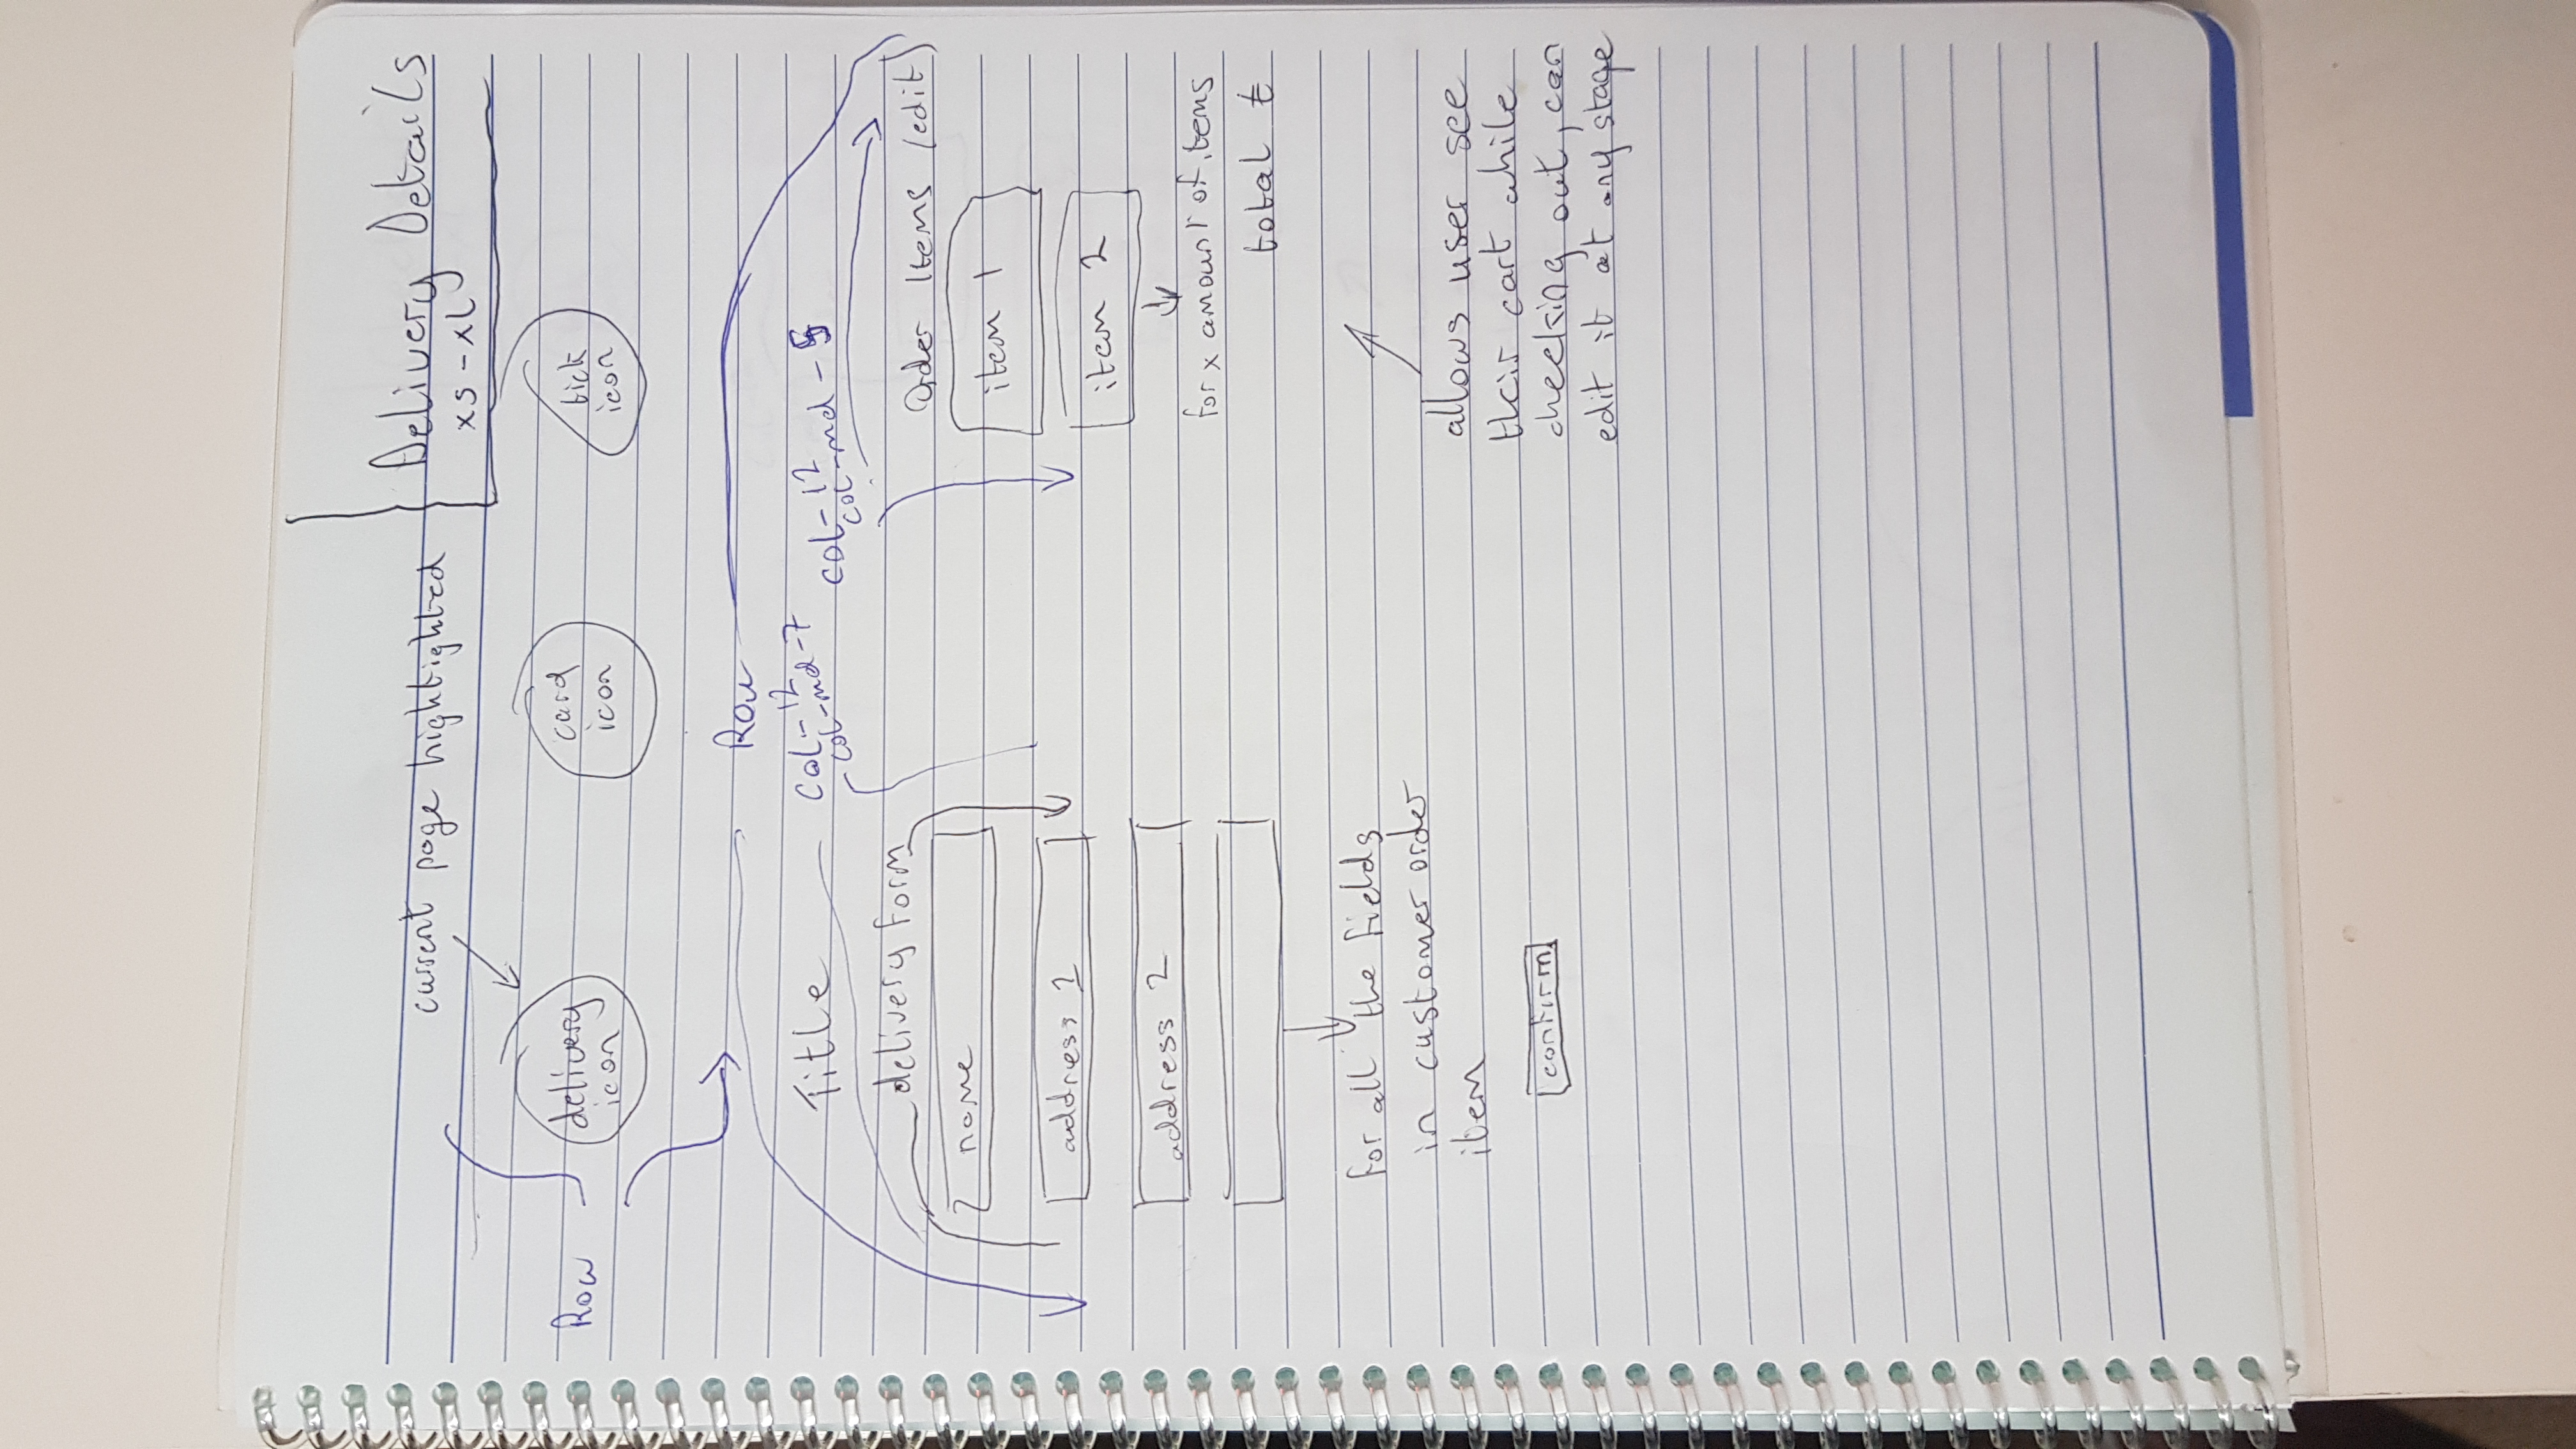 Delivery Details
xs - xl
current page hightighted
Row
delivery
icon
card
icon
tick
icon
Row
Title
col-12
col-md-7
col-12
col-md-5
delivery form
name
address 1
address 2
for all the fields
in customer order
item
confirm
Order Items (edit)
item 1
item 2
for x amount of items
total €
allows user see
their cart while
checking out, can
edit it at any stage